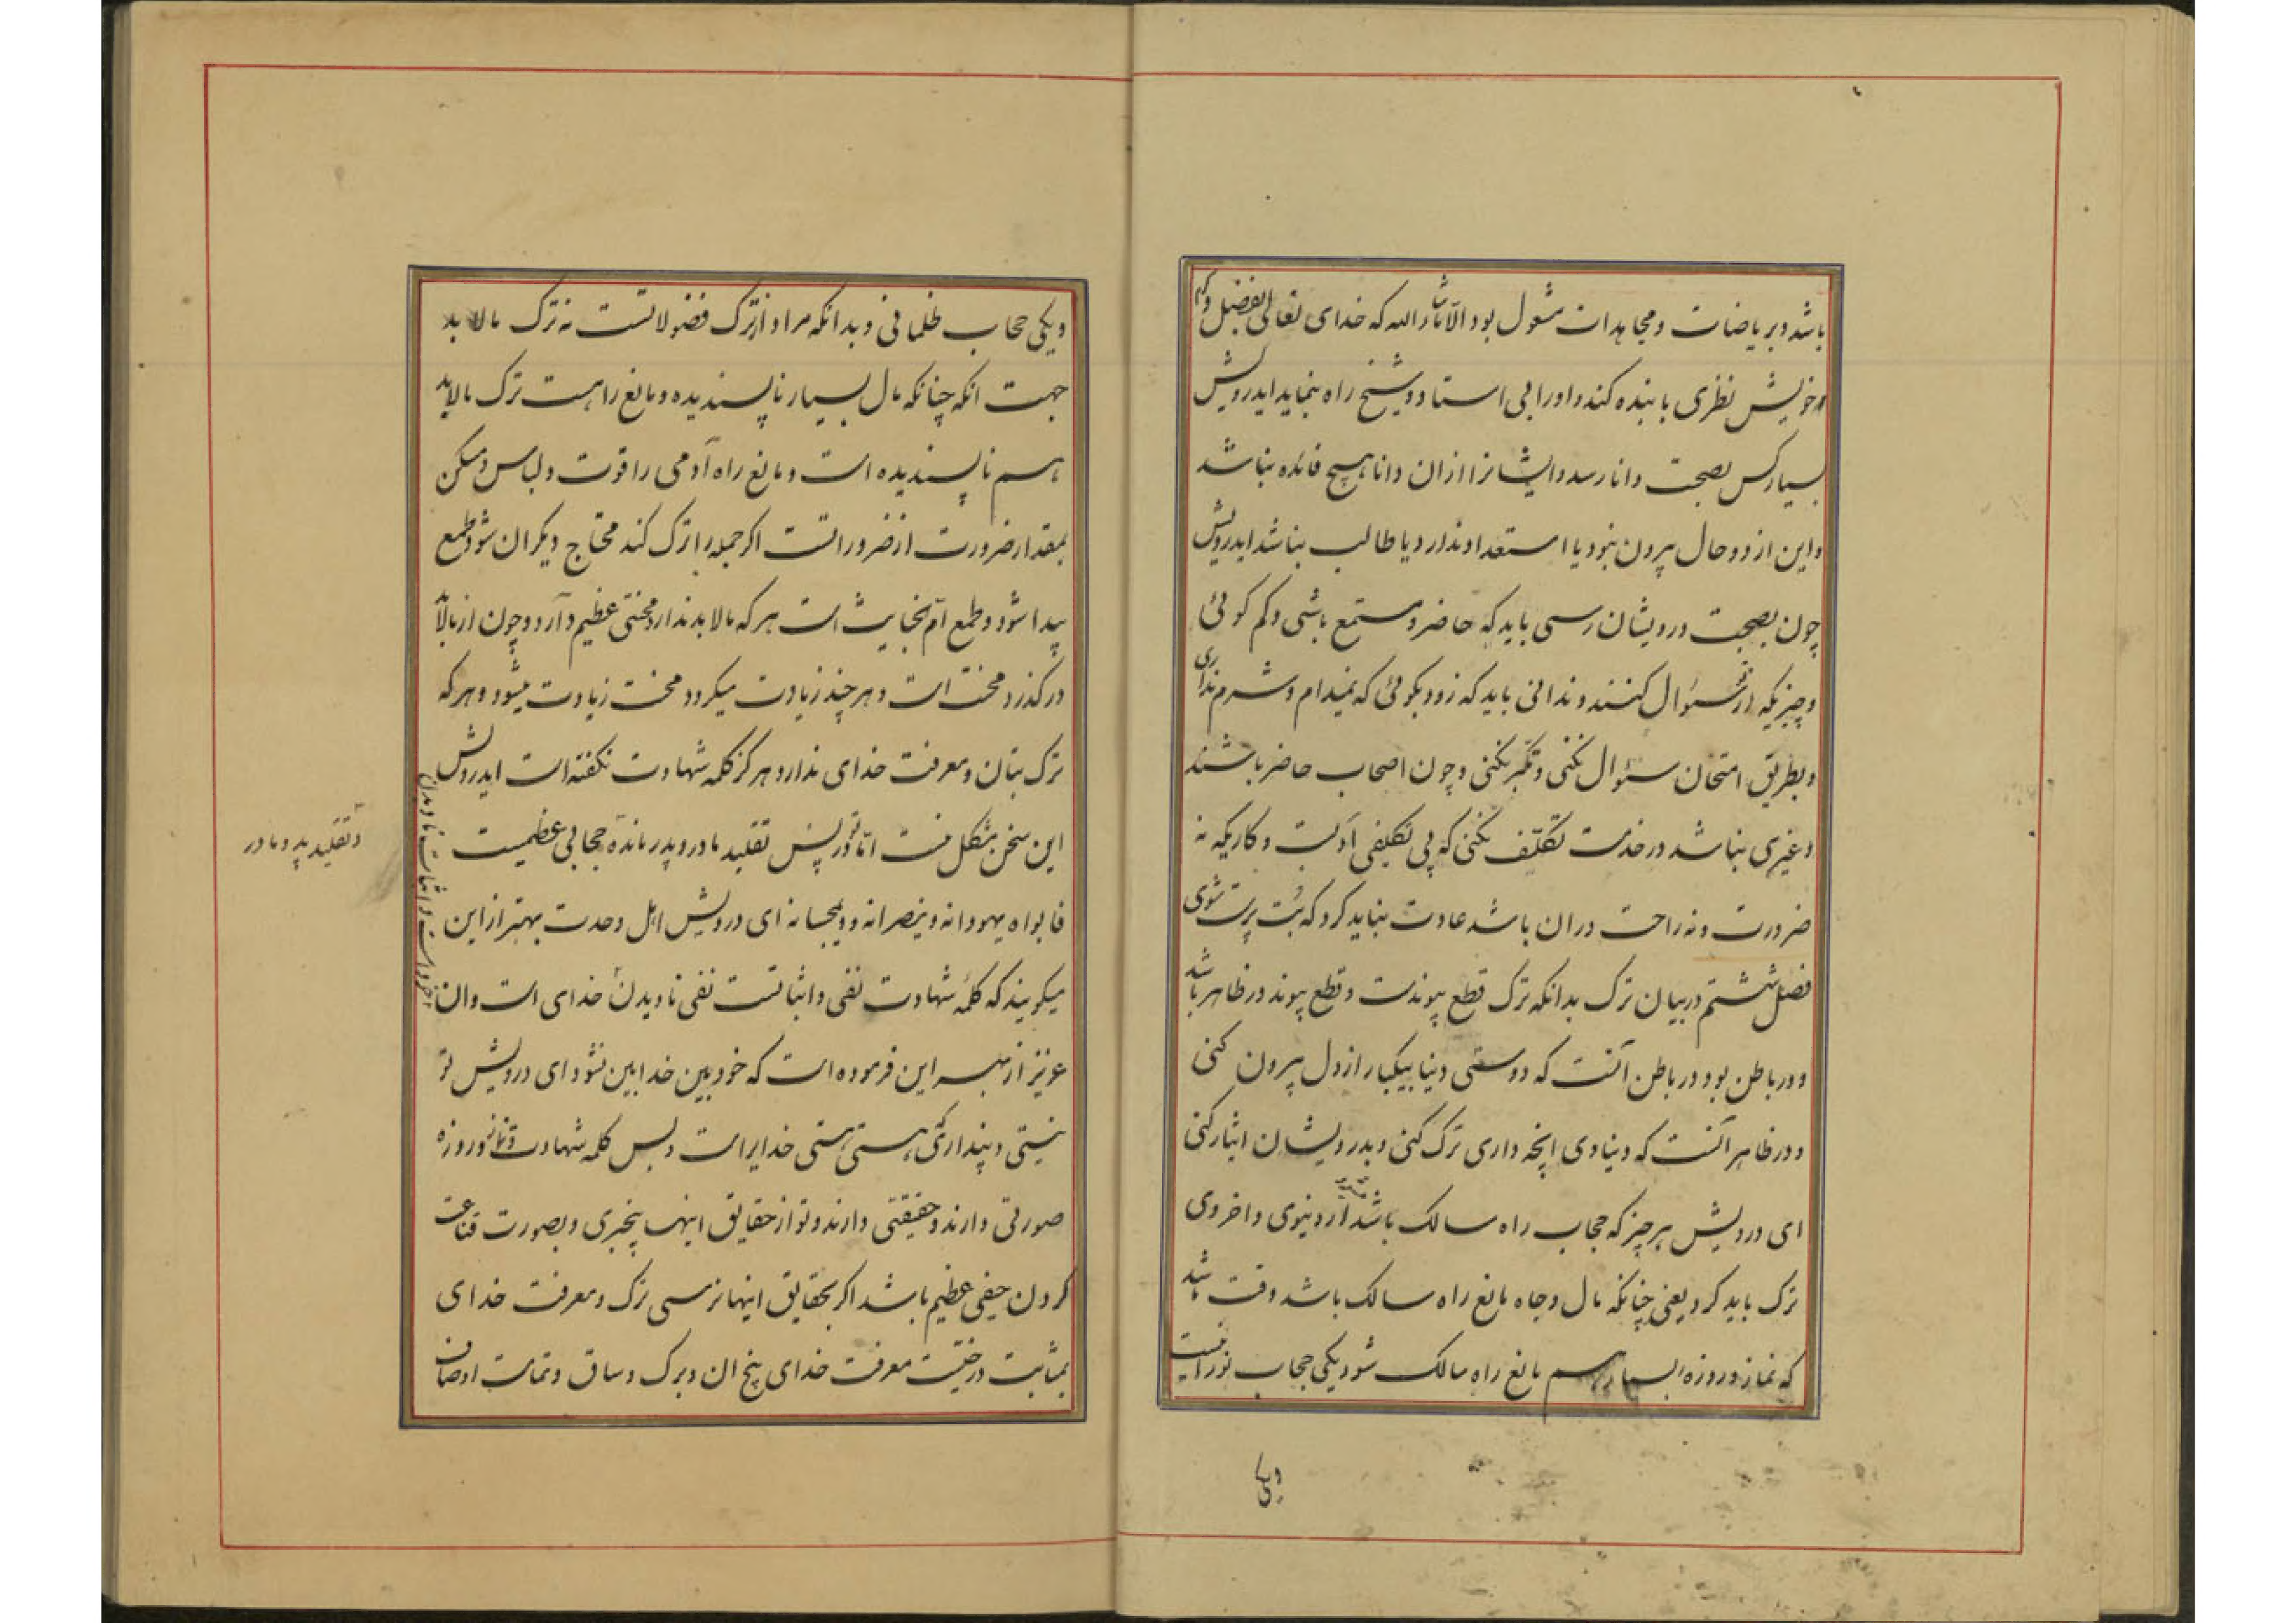 باشد و بریاضات و مجاهدات مشغول بود الا ماشاء الله که خدای تعالی بفضل و کرم
خویش نظری با بنده کند و او را بی استاد و شیخ راه بنماید ایدرویش
بسیار کس بصحبت دانا رسد و ایشانرا ازان دانا هیچ فائده نباشد
و این از دو حال بیرون نبود یا استعداد ندارد یا طالب نباشد ایدرویش
چون بصحبت درویشان رسی باید که حاضر و مستمع باشی و کم کوئی
و چیزیکه از تو سئوال کنند و ندانی باید که زود بکوئی که نمیدانم و شرم نداری
و بطریق امتحان سئوال نکنی و تکبر نکنی و چون اصحاب حاضر باشند
و غیری نباشد در خدمت تکلف نکنی که بی تکلیفی آدبست و کاریکه نه
ضرورت و نه راحت دران باشد عادت نباید کرد که بت پرست شوی
فصل ششتم در بیان ترک بدانکه ترک قطع پیوندست و قطع پیوند در ظاهر باشد
و در باطن بود در باطن آنست که دوستی دنیا بیکبار از دل بیرون کنی
و در ظاهر آنست که دنیاوی انچه داری ترک کنی و بدرویشان ایثار کنی
ای درویش هر چیز که حجاب راه سالک باشد از دنیوی و اخروی
ترک باید کرد یعنی چنانکه مال و جاه مانع راه سالک باشد وقت باشد
که نماز و روزه بسیار هم مانع راه سالک شود یکی حجاب نورانیست
ویکی
ویکی حجاب ظلمانی و بدانکه مراد از ترک فضولاتست نه ترک مالابد
جهت انکه چنانکه مال بسیار ناپسندیده و مانع راهست ترک مالابد
هم ناپسندیده است و مانع راه آدمی را قوت و لباس و مسکن
بمقدار ضرورت از ضروراتست اکر جمله را ترک کند محتاج دیکران شود و طمع
پیدا شود و طمع ام الخبایث است هر که مالابد ندارد محنتی عظیم دارد و چون از مالابد
در کذرد محنت است و هر چند زیادت میکردد محنت زیادت میشود و هر که
ترک بتان و معرفت خدای ندارد هرکز کلمه شهادت نکفته است ایدرویش
این سخن مشکل نیست اما تو در پس تقلید مادر و پدر مانده حجابی عظیمست
و تقلید پدر و مادر
فابواه یهودانه و ینصرانه و یمجسانه ای درویش اهل وحدت بهتر از این
میکویند که کلمه شهادت نفی و اثباتست نفی نادیدن خدای است و ان
عزیز از سر این فرموده است که خود بین خدا بین نشود ای درویش تو
نیستی و پنداری که هستی هستی خدایراست و بس کلمه شهادت و نماز و روزه
صورتی دارند و حقیقتی دارند و تو از حقایق اینها بیخبری و بصورت قناعت
کردن حیفی عظیم باشد اکر بحقایق اینها نرسی ترک و معرفت خدای
بمثابت درختیست معرفت خدای بیخ ان و برک و ساق و تمامت اوصاف